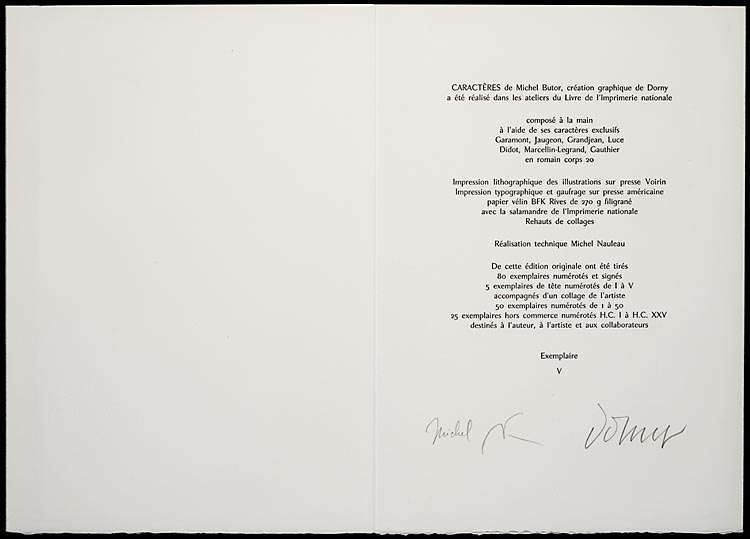 CARACTÈRES de Michel Butor, création graphique de Dorny
a été réalisé dans les ateliers du Livre de l'Imprimerie nationale
composé à la main
à l'aide de ses caractères exclusifs
Garamont, Jaugeon, Grandjean, Luce
Didot, Marcellin-Legrand, Gauthier
en romain corps 20
Impression lithographique des illustrations sur presse Voirin
Impression typographique et gaufrage sur presse américaine
papier vélin BFK Rives de 270 g filigrané
avec la salamandre de l'Imprimerie nationale
Rehauts de collages
Réalisation technique Michel Nauleau
De cette édition originale ont été tirés
80 exemplaires numérotés et signés
5 exemplaires de tête numérotés de I à V
accompagnés d'un collage de l'artiste
50 exemplaires numérotés de 1 à 50
25 exemplaires hors commerce numérotés H.C. I à H.C. XXV
destinés à l'auteur, à l'artiste et aux collaborateurs
Exemplaire
V
Michel Dorny